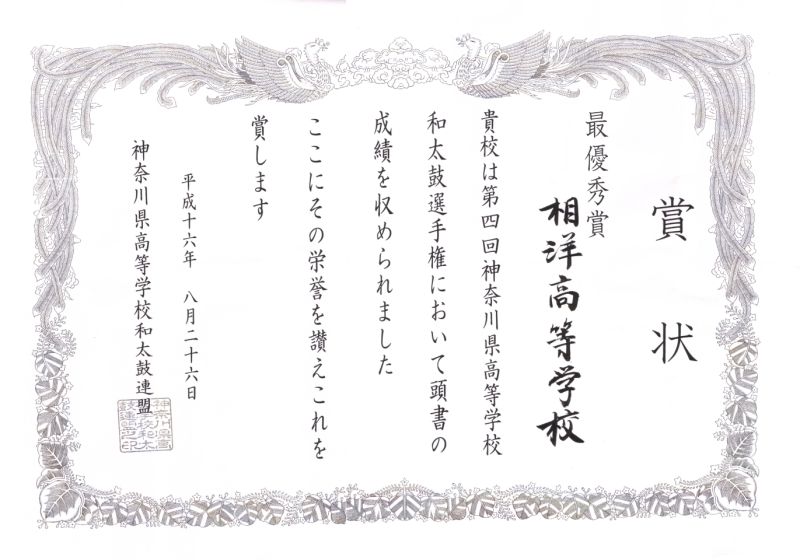 賞状
最優秀賞
相洋高等学校
貴校は第四回神奈川県高等学校
和太鼓選手権において頭書の
成績を収められました
ここにその栄誉を讃えこれを
賞します
平成十六年 八月二十六日
神奈川県高等学校和太鼓連盟